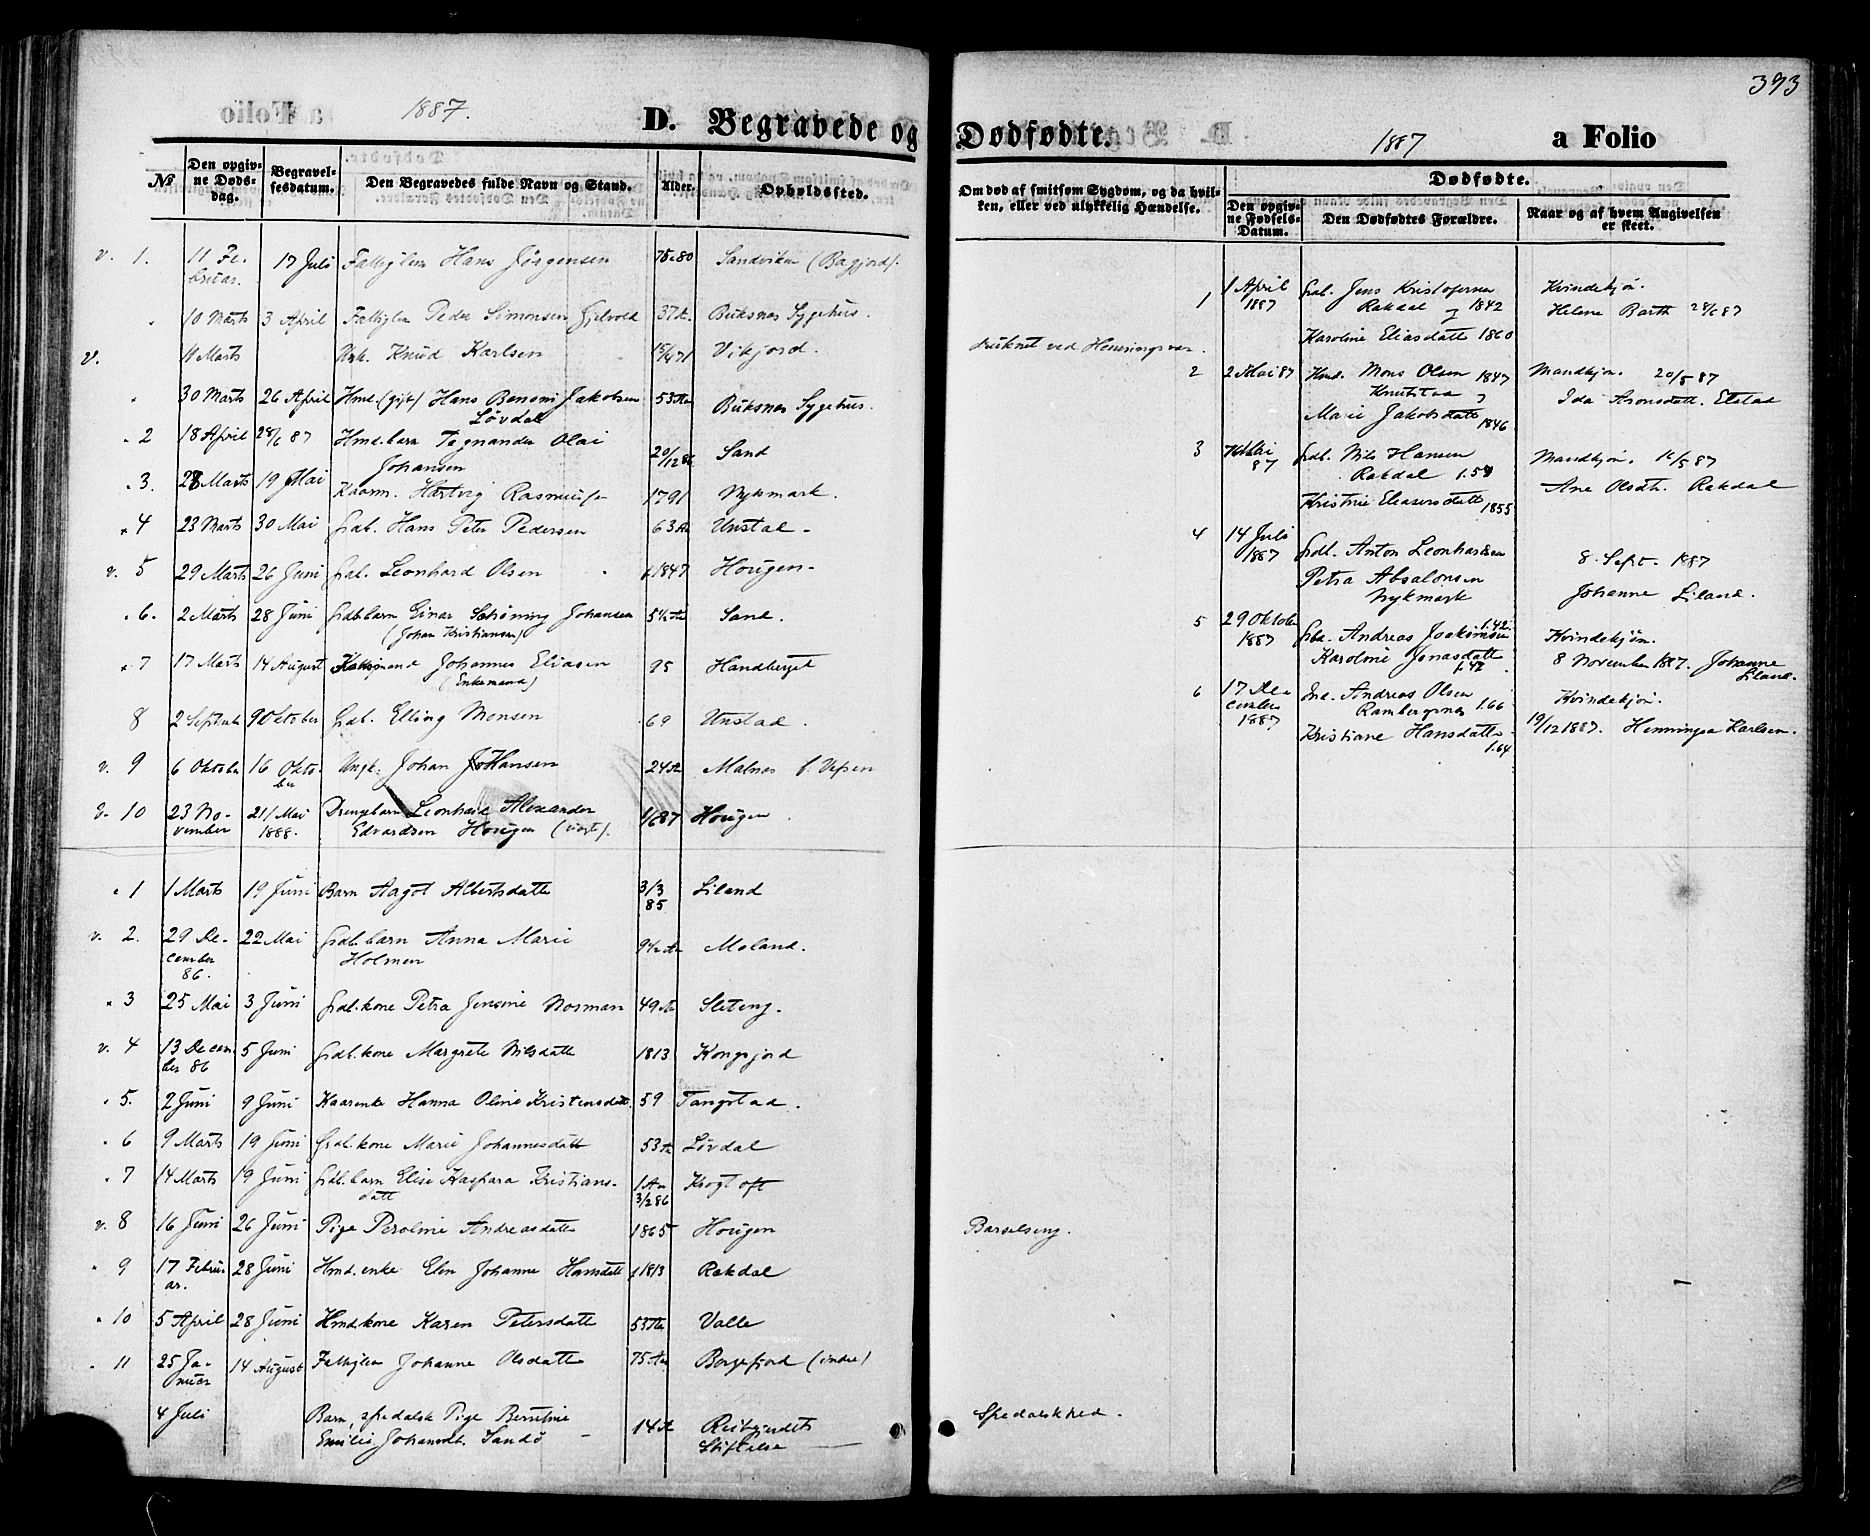 393
1887.
D. Begravede og Dødfødte.
1887
a Folio
№
Den opgivne Dødsdag.
Begravelsesdatum.
Den Begravedes fulde Navn og Stand.
Alder.
Opholdssted.
Om død af smitsom Sygdom, og da hvilken, eller ved ulykkelig Hændelse.
Dødfødte.
Den opgivne Fødsels-Datum.
Den Dødfødtes Forældre.
Naar og af hvem Angivelsen er skeet.
v. 1. 11 Februar. 17 Juli Fattiglem Hans Jørgensen 75 a 80 Sandviken (Bagjord).
10 Marts 3 April Fattiglem Peder Simonsen Gjelvold 37 Buksnes Sygehus.
v. 11 Marts Knud Karlsen 15/4 71 Vikjord. druknet ved Henningsvær.
30 Marts 26 April Hmd. (gift) Hans Benoni Jakobsen 53 Aar Buksnes Sygehus.
Løvdal
2 18 April 28/6 87 Hmd. barn Tegnander Olai 20/12 86 Sand
Johansen
3. 28 Marts 19 Mai Kaarm. Hartvig Rasmus 1791 Nykmark.
4 23 Marts 30 Mai Grdb. Hans Peter Pedersen 63 Aar Unstad -
v. 5 29 Marts 26 Juni Grdb. Leonhard Olsen 1847 Hougen -
6. 2 Marts 28 Juni Grdb. barn Einar Schøning Johansen 5½ Aar Sand.
(Johan Kristiansen)
7 17 Marts 14 August Johannes Eliasen 95 Handberget
(Enkemand)
8 2 Septbr 9 Oktober Grdb. Elling Monsen 69 Unstad.
v. 9 6 Oktober 16 Oktober Ungk. Johan Hansen 24 Aar Malnes f. Vefsen
v. 10 23 November 21/Mai 1888. Drengebarn Leonhard Alexander 1/6 87 Hougen
Edvardsen Hougen
1 1 Marts 19 Juni Barn Aagot Albertsdatter 3/3 85 Liland
v. 2. 29 December 86. 22 Mai Grdb. barn Anna Marie 9½ Aar Moland.
Holmen
3 25 Mai 3 Juni Grdb. kone Petra Jensine Norman 49 Aar Sleteng.
v. 4 13 December 86 5 Juni Grdb. kone Margrete Nilsdatter 1813 Kongsjord
5. 2 Juni 9 Juni Kaarenke Hanna Oline Kristensdatt 59 Tangstad.
6 9 Marts 19 Juni Grdb. kone Marie Johannesdatter 53 Aar Løvdal
7 14 Marts 19 Juni Grdb. barn Elise Kaspara Kristians- 1 Aar 3/2 86 Krogtoft
datt
v. 8 16 Juni 26 Juni Pige Peroline Andreasdatter 1865 Hougen Barselseng.
9 17 Februar. 28 Juni Hmd. enke Elen Johanne Hansdatt 1813 Rakdal
10 5 April 28 Juni Hmd. kone Karen Petersdatter 53 Aar Valle
11 25 Januar 14 August Fattiglem Johanne Olsdatter 75 Aar Borgefjord (indre)
4 Juli Barn, spedalsk Pige Berntine 14 Reitgjerdets Spedalskhed.
Emilie Johansdt. Sandø - Stiftelse
1 1 April 1887 Grdb. Jens Kristofersen Kvindekjøn.
Rakdal 1842 Helene Barth 28/6 87
Karoline Eliasdatt 1860
2 2 Mai 87 Hmd. Mons Olsen 1847 Mandkjøn. 20/5 87
Knutstad Ida Aronsdatt. Elstad
Marie Jakobsdatt 1846
3 Mai 87 Grdb. Nils Hansen Mandkjøn. 87
Rakdal Ane Olsdt. Rakdal
Kristine Eleasersdatt 1855
4 14 Juli 1887 Grdb. Anton Leonhardsen 8. Sept. 1887
Petra Absalonsen Johanne Liland.
Nykmark
5 29 Oktober 1887 Grdb. Andreas Joakimsen f.42. Kvindekjøn.
Karoline Jonasdatt f.42 8 November 1887. Johanne Liland.
6 17 December 1887 Ind. Andreas Olsen Kvindekjøn.
Rambergsnes f.66 19/12 1887. Henningea Karlsen.
Kristiane Hansdatter f.64